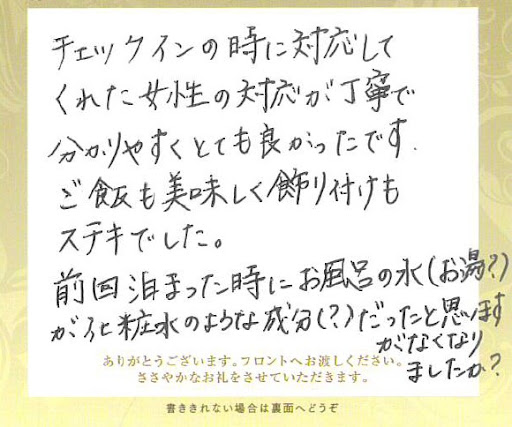 チェックインの時に対応して
くれた女性の対応が丁寧で
分かりやすくとても良かったです.
ご飯も美味しく飾り付けも
ステキでした。
前回泊まった時にお風呂の水(お湯?)
が化粧水のような成分(?)だったと思いますが
なくなり
ましたか?
ありがとうございます。フロントへお渡しください。
ささやかなお礼をさせていただきます。
書ききれない場合は裏面へどうぞ